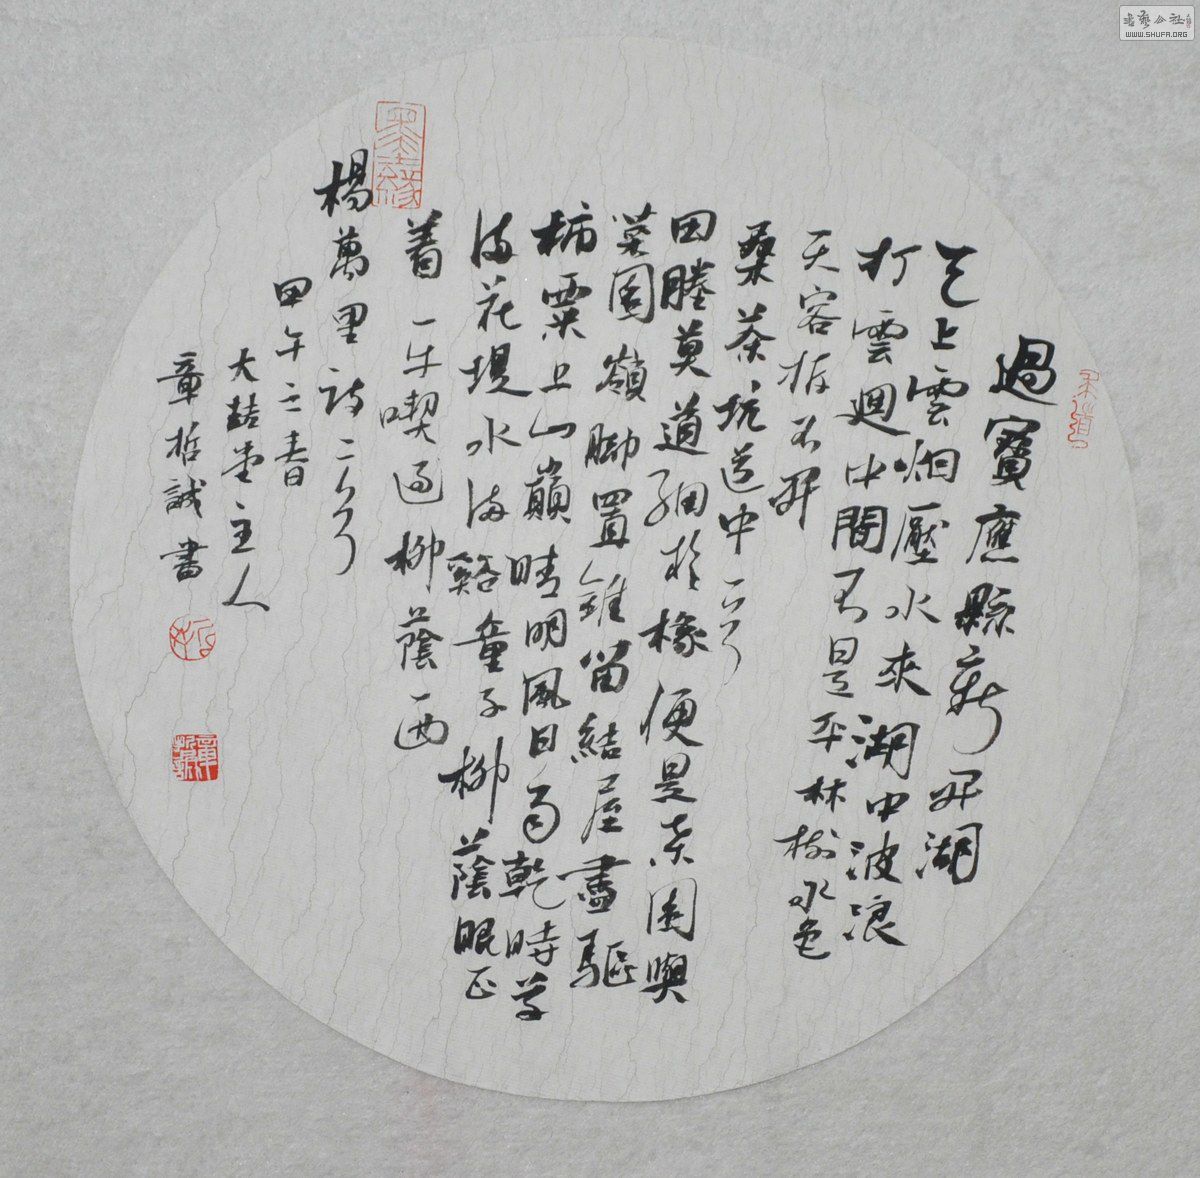 過寶應縣新开湖
天上雲烟壓水來湖中波浪
打雲迴中間不是平林樹水色
天容拆不开
桑茶坑道中二首
田塍莫道細於椽便是桑園與
菜園嶺脚置錐留結屋盡驅
柿粟上山巔晴明風日雨乾時草
滿花堤水滿谿童子柳蔭眠正
着一牛喫過柳蔭西
楊萬里詩二首
甲午之春
大喆堂主人
章哲誠書
墨緣
書藝公社
WWW.SHUFA.ORG